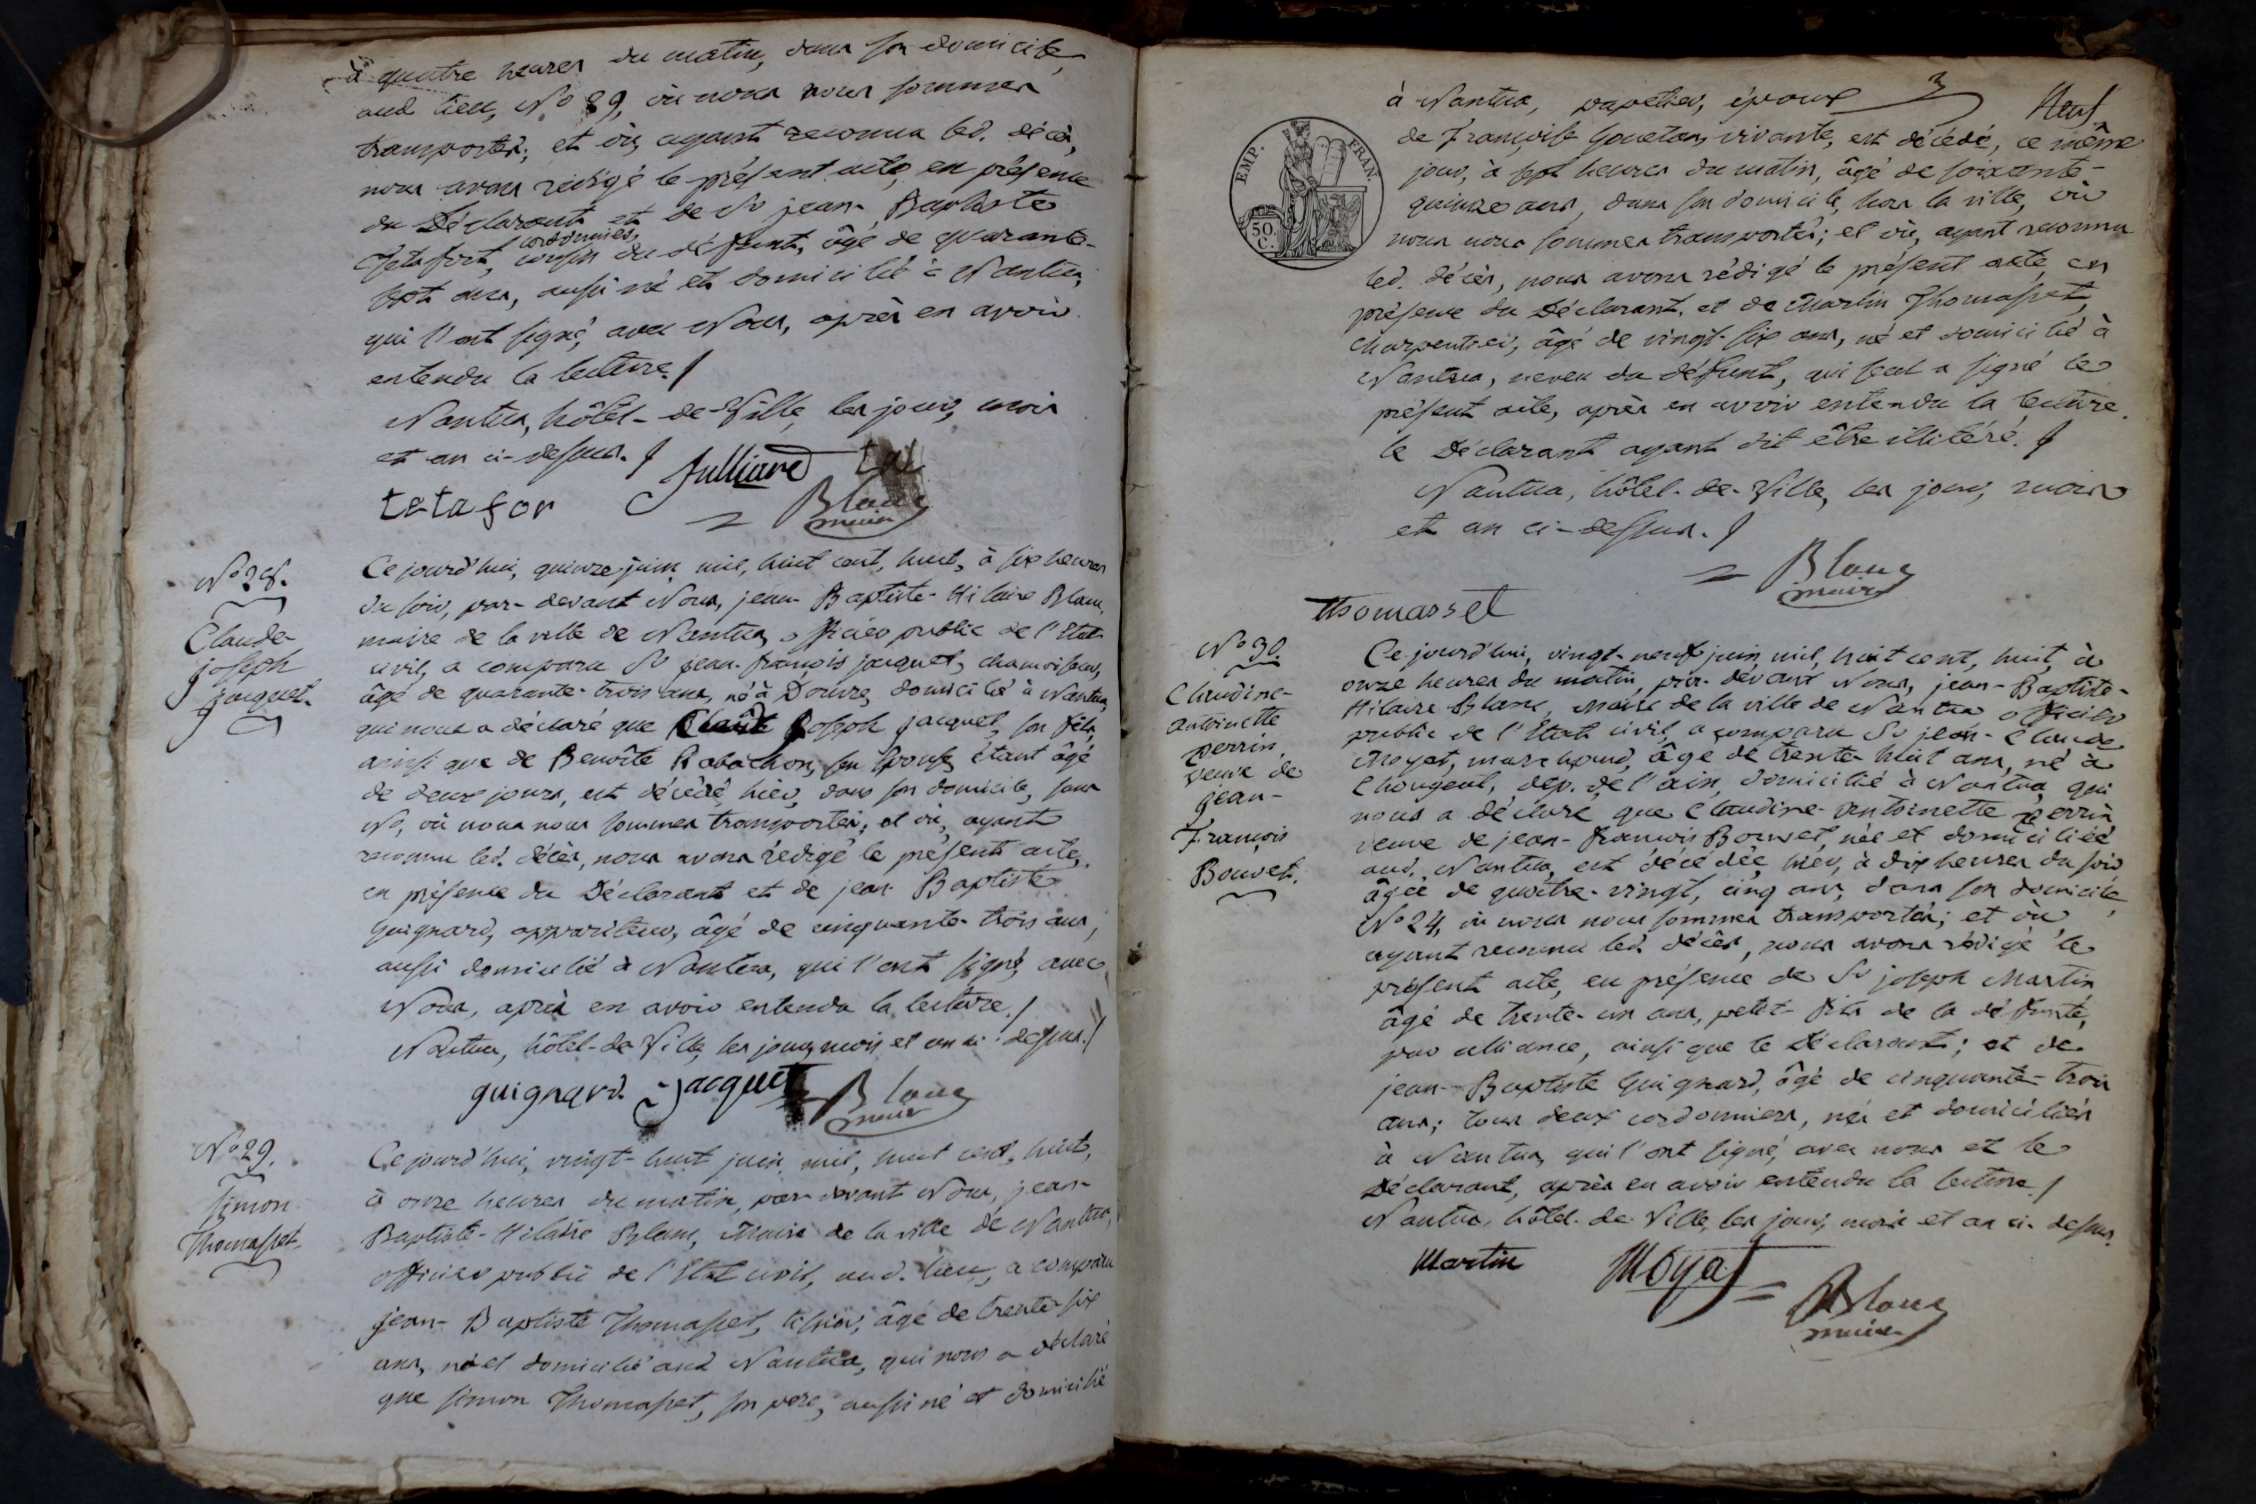 à quatre heures du matin, dans son domicile,
aud. lieu, No 89, où nous nous sommes
transportés; et où, ayant reconnu led. décès,
nous avons rédigé le présent acte, en présence
du Déclarant et de Sr jean-Baptiste
cordonnier,
Tetafort, cousin du défunt, âgé de quarante-
sept ans, aussi né et domicilié à Nantua,
qui l'ont signé, avec Nous, après en avoir
entendu la lecture./
Nantua, hôtel-de-Ville, les jour, mois
et an ci-dessus./
Julliard
tetafor
Blanc
maire
No 28.
Claude
joseph
jacquet.
Ce jourd'hui, quinze juin, mil, huit cent, huit, à six heures
du soir, par-devant Nous, jean-Baptiste-Hilaire Blanc,
maire de la ville de Nantua, officier public de l'Etat
civil, a comparu Sr jean-françois jacquet, chamoiseur,
âgé de quarante-trois ans, né à Douvre, domicilié à Nantua,
qui nous a déclaré que Claude joseph jacquet, son fils,
ainsi que de Benoîte Robachon, son épouse, étant âgé
de deux jours, est décédé, hier, dans son domicile, sans
No, où nous nous sommes transportés; et où, ayant
reconnu led. décès, nous avons rédigé le présent acte,
en présence du Déclarant et de jean Baptiste
Guignard, appariteur, âgé de cinquante-trois ans,
aussi domicilié à Nantua, qui l'ont signé, avec
Nous, après en avoir entendu la lecture./
Nantua, hôtel-de Ville, les jour, mois et an ci-dessus./
guignard. jacquet
Blanc
maire
No 29.
Simon
Thomasset.
Ce jourd'hui, vingt-huit juin, mil, huit cent, huit,
à onze heures du matin, par-devant Nous, jean-
Baptiste-Hilaire Blanc, Maire de la ville de Nantua,
officier public de l'Etat civil, aud. lieu, a comparu
jean-Baptiste Thomasset, âgé de trente-six
ans, né et domicilié aud Nantua, qui nous a déclaré
que Simon Thomasset, son père, aussi né et domicilié
EMP. FRAN.
50.
C.
à Nantua, papetier, époux
Neuf
de Françoise Gouetan, vivante, est décédé, ce même
jour, à sept heures du matin, âgé de soixante-
quinze ans, dans son domicile, hors la ville, où
nous nous sommes transportés; et où, ayant reconnu
led. décès, nous avons rédigé le présent acte, en
présence du Déclarant, et de Martin Thomasset,
charpentier, âgé de vingt-six ans, né et domicilié à
Nantua, neveu du défunt, qui seul a signé le
présent acte, après en avoir entendu la lecture.
le Déclarant ayant dit être illitéré./
Nantua, hôtel-de-Ville, les jour, mois
et an ci-dessus./
Blanc
maire
thomasset
No 30.
Claudine-
antoinette
perrin,
veuve de
jean-
François
Bouvet.
Ce jourd'hui, vingt-neuf juin, mil, huit cent, huit, à
onze heures du matin, par-devant Nous, jean-Baptiste-
Hilaire Blanc, Maire de la ville de Nantua officier
public de l'Etat civil, a comparu Sr jean-Claude
Moyat, marchand, âgé de trente-huit ans, né à
Chougeat, dep. de l'ain, domicilié à Nantua, qui
nous a déclaré que Claudine-antoinette perrin
veuve de jean-françois Bouvet, née et domiciliée
aud. Nantua, est décédée, hier, à dix heures du soir,
âgée de quatre-vingt, cinq ans, dans son domicile,
No 24, où nous nous sommes transportés; et où
ayant reconnu led. décès, nous avons rédigé le
présent acte, en présence de Sr joseph Martin
âgé de trente-un ans, petit-fils de la défunte,
par alliance, ainsi que le Déclarant; et de
jean-Baptiste Guignard, âgé de cinquante-trois
ans; tous deux cordonniers, nés et domiciliés
à Nantua, qui l'ont signé, avec nous et le
Déclarant, après en avoir entendu la lecture./
Nantua, hôtel-de-Ville, les jour, mois et an ci-dessus.
Martin Moyat
Blanc
maire